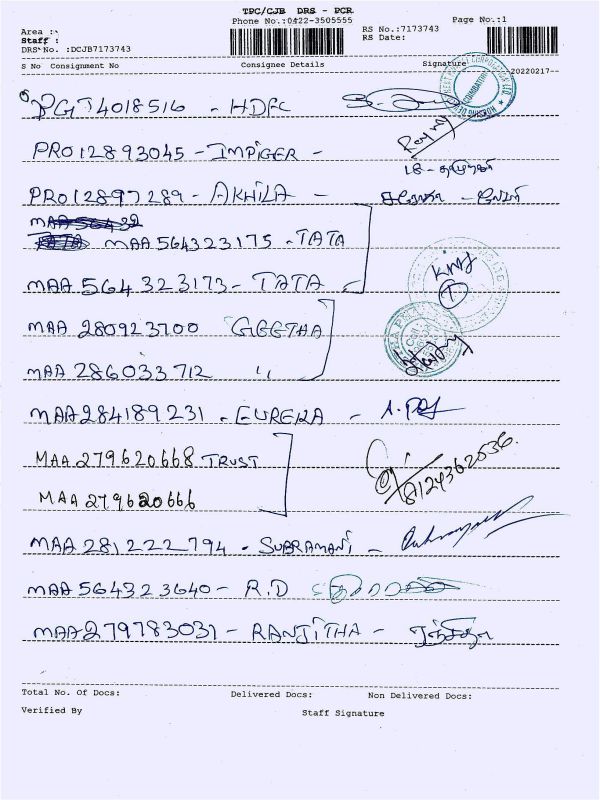 TPC/CJB DRS - PCR
Phone No.:0422-3505555 Page No.:1
Area :
Staff : RS No.:7173743
DRS No. :DCJB7173743 RS Date:
S No Consignment No Consignee Details Signature
20220217
PGT4018516 - HDFC
PRO12893045 - IMPIGER -
PRO12897289 - AKHILA -
MAA 564323175 - TATA
MAA 564 323173 - TATA
MAA 280923700 GEETHA
MAA 286033712 "
MAA284189231 - EUREKA -
MAA 279620668 TRUST
8124362536
MAA 279620666
MAA 281222794 - SUBRAMANI -
MAA 564323640 - R.D
MAA279783031 - RANJITHA - ரஞ்சிதா
Total No. Of Docs: Delivered Docs: Non Delivered Docs:
Verified By Staff Signature